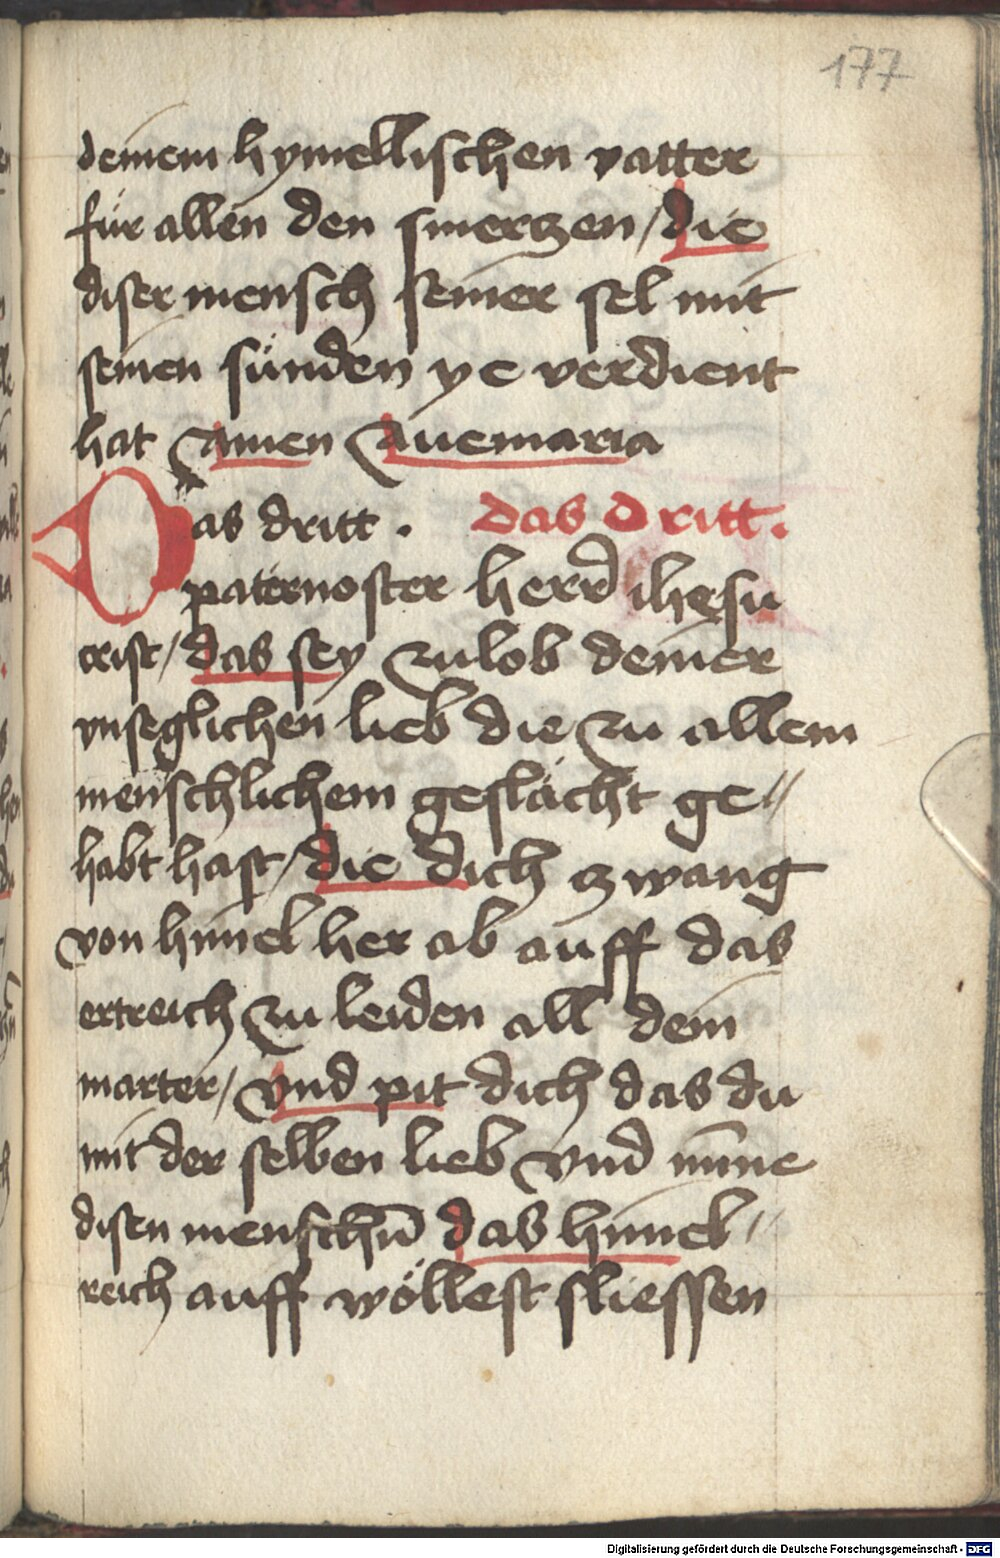 177
deinem hymellischen vatter
für allen den smerczen / die
diser mensch seiner sel mit
seinen sünden ye verdient
hat Amen Auemaria
Das dritt . das dritt .
paternoster herr ihesu
crist / das sey zu lob deiner
vnseglichen lieb die zu allem
menschlichem geslächt ge〃
habt hast / die dich czwang
von himel her ab auff das
ertreich zu leiden all dein
marter / vnd pit dich das du
mit der selben lieb vnd mīne
disen menschen das himel〃
reich auff wöllest sliessen
Digitalisierung gefördert durch die Deutsche Forschungsgemeinschaft - DFG